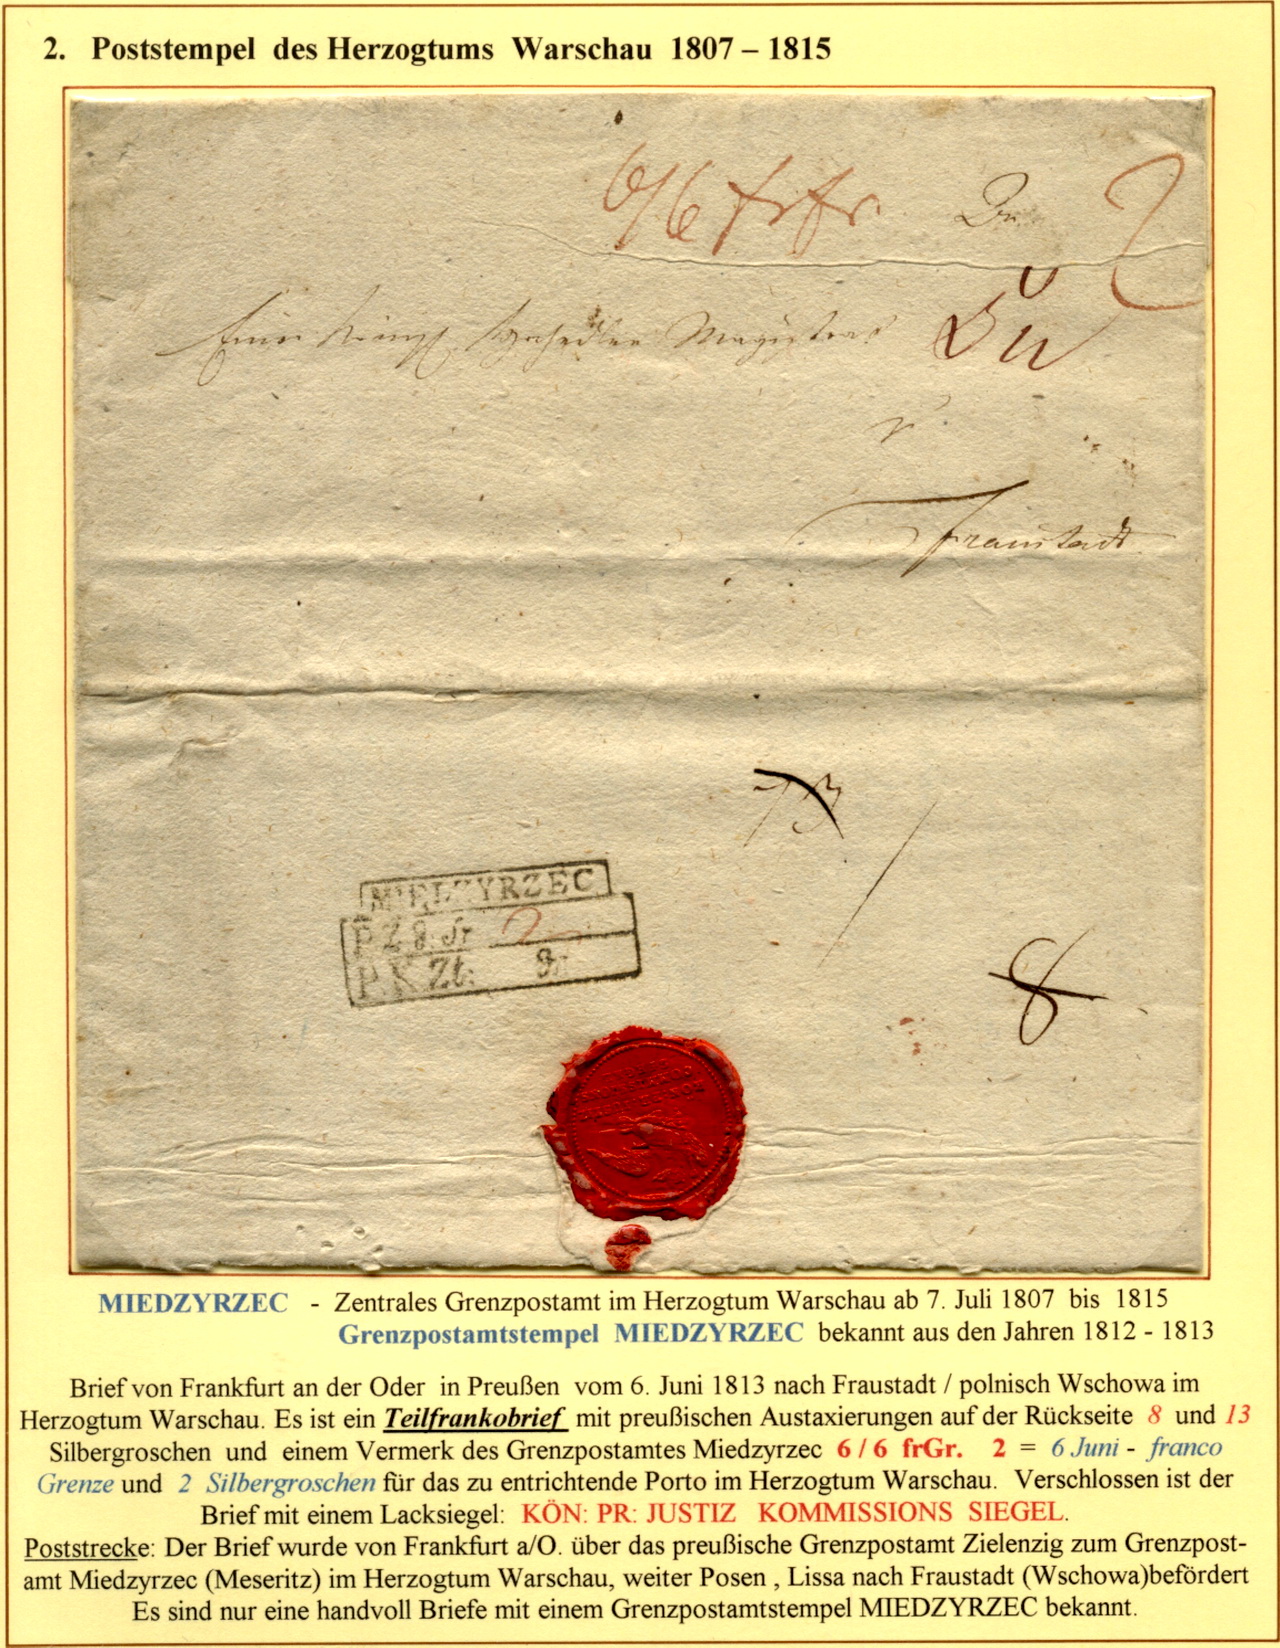 2. Poststempel des Herzogtums Warschau 1807 – 1815
6/6 frfr 2
Magistrat
Fraustadt
8
MIEDZYRZEC
P. Z g. Jr 2
P. K Zt. gr
MIEDZYRZEC - Zentrales Grenzpostamt im Herzogtum Warschau ab 7. Juli 1807 bis 1815
Grenzpostamtstempel MIEDZYRZEC bekannt aus den Jahren 1812 - 1813
Brief von Frankfurt an der Oder in Preußen vom 6. Juni 1813 nach Fraustadt / polnisch Wschowa im
Herzogtum Warschau. Es ist ein Teilfrankobrief mit preußischen Austaxierungen auf der Rückseite 8 und 13
Silbergroschen und einem Vermerk des Grenzpostamtes Miedzyrzec 6 / 6 frGr. 2 = 6 Juni - franco
Grenze und 2 Silbergroschen für das zu entrichtende Porto im Herzogtum Warschau. Verschlossen ist der
Brief mit einem Lacksiegel: KÖN: PR: JUSTIZ KOMMISSIONS SIEGEL.
Poststrecke: Der Brief wurde von Frankfurt a/O. über das preußische Grenzpostamt Zielenzig zum Grenzpost-
amt Miedzyrzec (Meseritz) im Herzogtum Warschau, weiter Posen , Lissa nach Fraustadt (Wschowa)befördert
Es sind nur eine handvoll Briefe mit einem Grenzpostamtstempel MIEDZYRZEC bekannt.